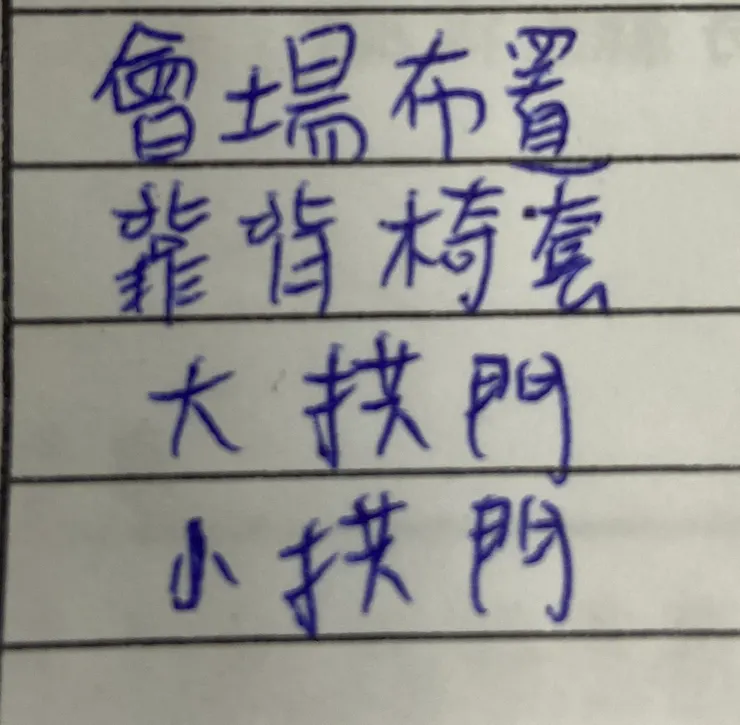 會場布置
靠背椅套
大拱門
小拱門